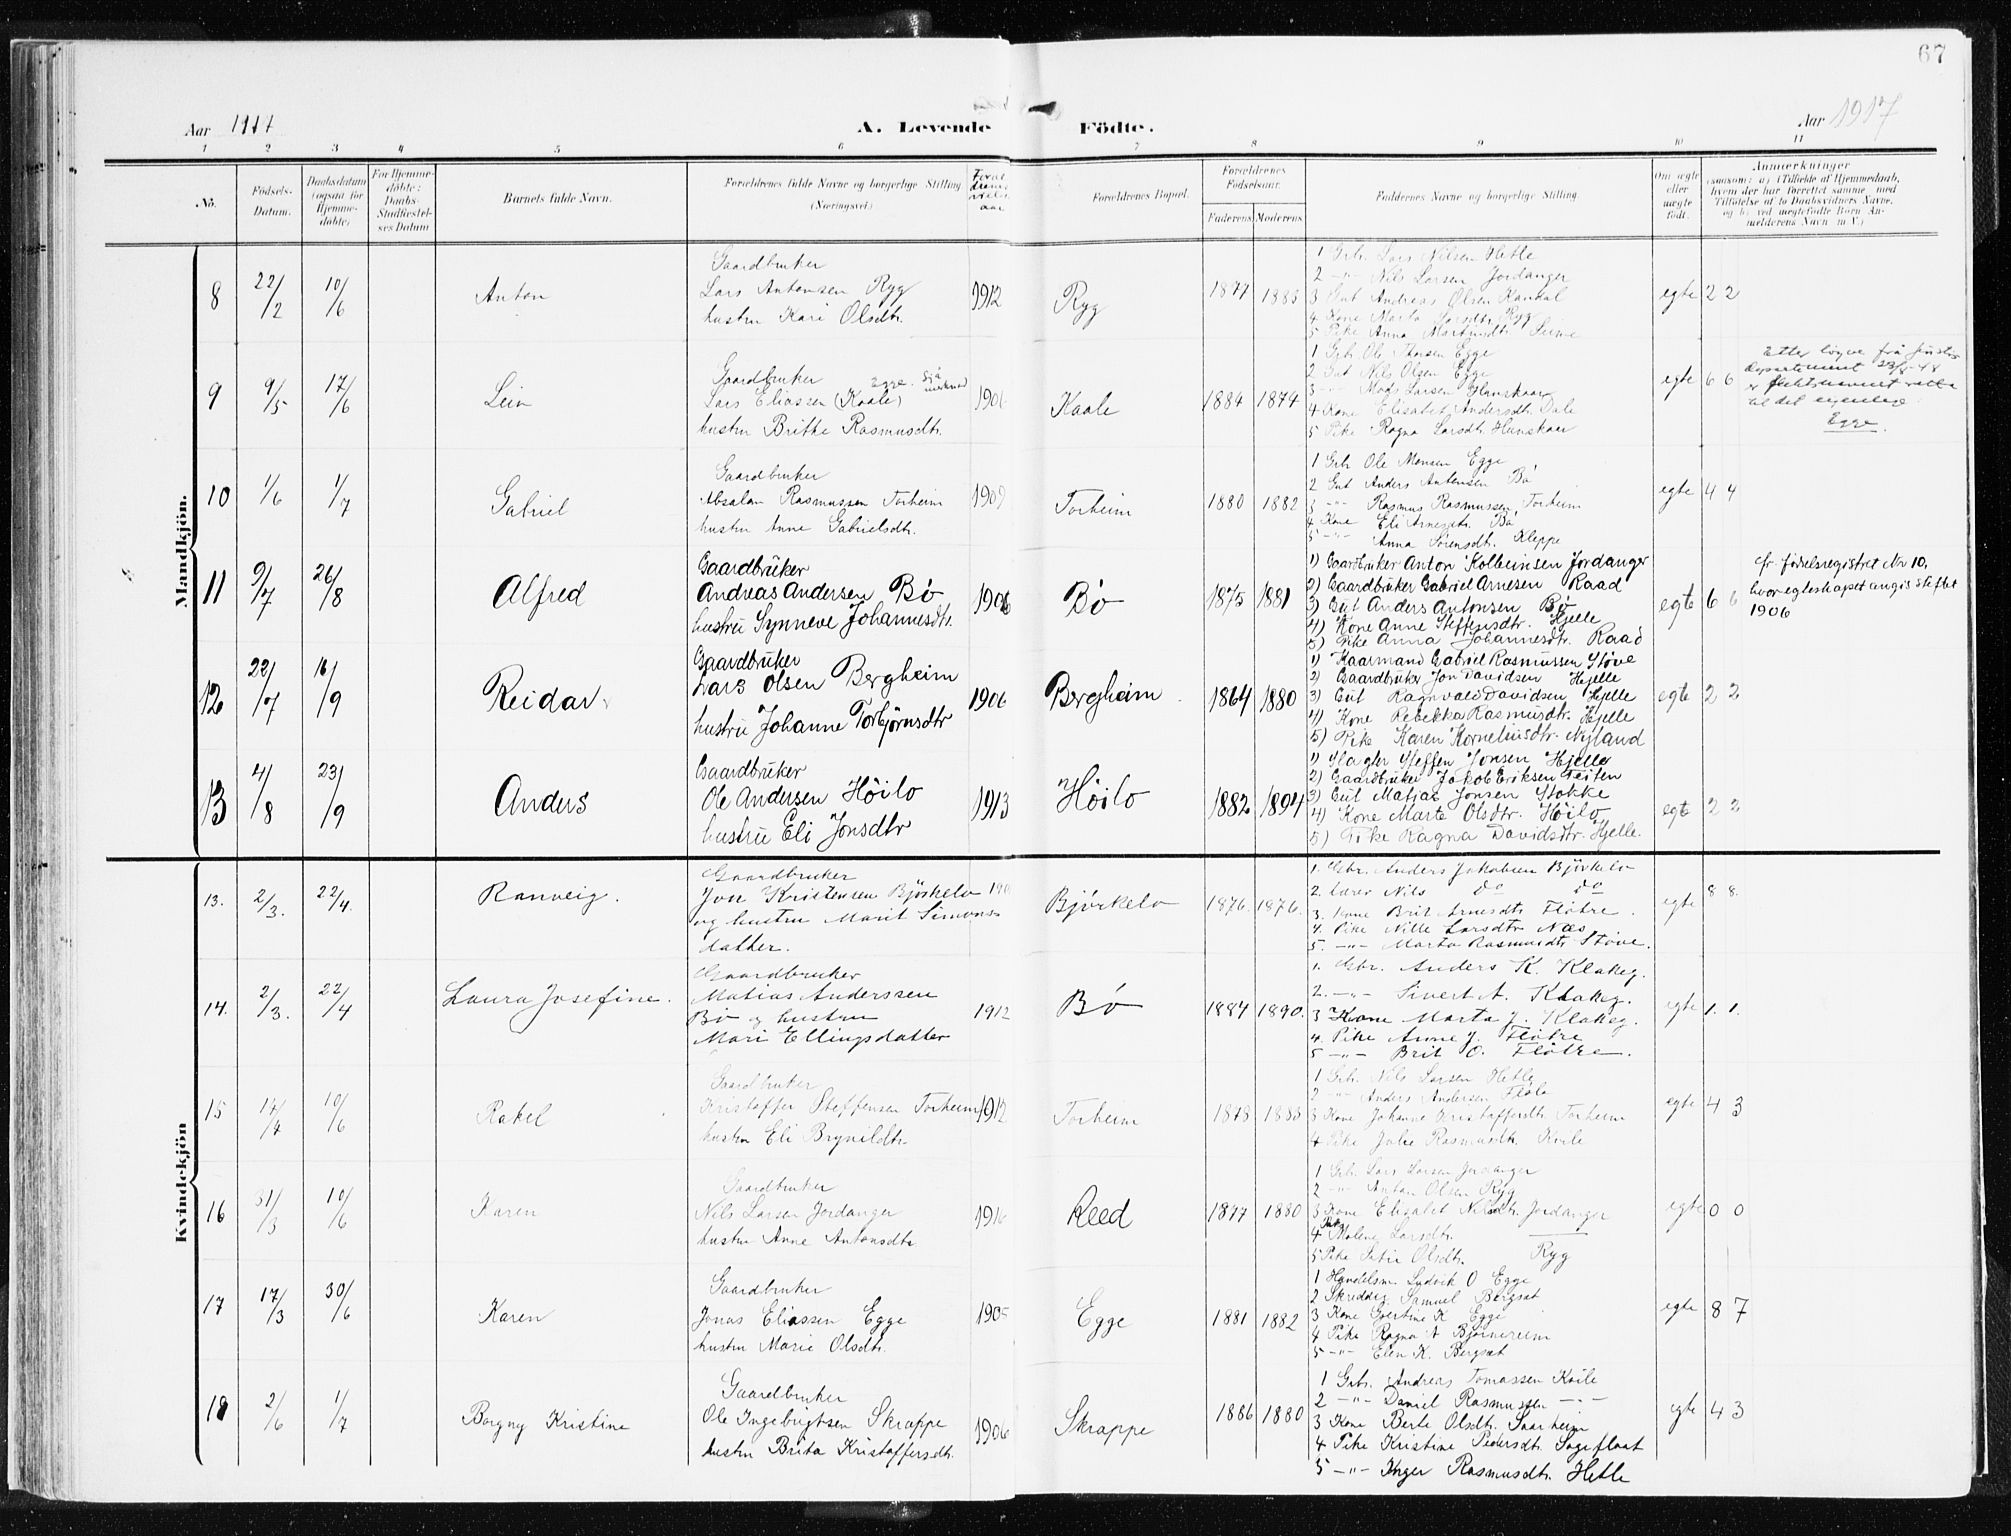 67
Aar 1917 A. Levende Födte. Aar 1917
1 2 3 4 5 6 7 8 9 10 11
No. Födsels-Datum. Daabsdatum (ogsaa for Hjemmedöbte) For Hjemmedöbte: Daabs-Stadfæstelses Datum Barnets fulde Navn. Forældrenes fulde Navne og borgerlige Stilling (Næringsvei.) Forældrenes Bopæl. Forældrenes Födselsaar. Faderens Moderens Faddernes Navne og borgerlige Stilling. Om ægte eller uægte födt. Anmærkninger
Mandkjön.
8 22/2 10/6 Anton
Gaardbruker
Lars Antonsen Ryg
hustru Kari Olsdtr.
1912 Ryg 1877 1883
1 Grb. Lars Nilsen Hetle
2 -"- Nils Larsen Jordanger
3 Gut Andreas Olsen Kandal
4 Kone Marta Larsdtr. Ryg
5 Pike Anna Martinsdtr. Seime
egte 2 2
9 9/5 17/6 Leiv
Gaardbruker Egge. Sjå merknad
Lars Eliassen (Kaale)
hustru Brithe Rasmusdtr.
1906 Kaale 1884 1874
1 Grb. Ole Thorsen Egge
2 Gut Nils Olsen Egge
3 -"- Mads Larsen Hanskaar
4 Kone Elisabet Andersdtr. Dale
5 Pike Ragna Larsdtr. Hanskaar
egte 6 6
Etter löyve frå Justis
departementet 23/8-48
er slektsnavnet retta
til det egentlege
Egge.
10 1/6 1/7 Gabriel
Gaardbruker
Absalon Rasmussen Torheim
hustru Anne Gabrielsdtr.
1909 Torheim 1880 1882
1 Grb. Ole Monsen Egge
2 Gut Anders Antonsen Bö
3 -"- Rasmus Rasmussen Torheim
4 Kone Eli Arnesdtr. Bö
5 -"- Anna Sörensdtr. Kleppe
egte 4 4
11 9/7 26/8 Alfred
Gaardbruker
Andreas Andersen Bö
hustru Synneve Johannesdtr.
1906 Bö 1875 1881
1) Gaardbruker Anton Kolbeinsen Jordanger
2) Gaardbruker Gabriel Arnesen Raad
3) Gut Anders Antonsen Bö
4) Kone Anne Steffensdtr. Hjelle
5) Pike Anna Johannesdtr. Raad
egte 6 6
fr. födselsregistret Nr 10,
hvor egteskapet angis stiftet
1906
12 22/7 16/9 Reidar
Gaardbruker
Lars Olsen Bergheim
hustru Johanne Torbjörnsdtr
1906 Bergheim 1864 1880
1) Kaarmand Gabriel Rasmussen Stöve
2) Gaardbruker Jon Davidsen Hjelle
3) Gut Ragnvald Davidsen Hjelle
4) Kone Rebekka Rasmusdtr. Hjelle
5) Pike Karen Korneliusdtr. Nyland
egte 2 2
13 4/8 23/9 Anders
Gaardbruker
Ole Andersen Höilo
hustru Eli Jonsdtr
1913 Höilo 1882 1894
1) Slagter Steffen Jonsen Hjelle
2) Gaardbruker Jakob Eriksen Teiten
3) Gut Matias Jonsen Stokke
4) Kone Marte Olsdtr. Höilo
5) Pike Ragna Davidsdtr. Hjelle.
egte 2 2
Kvindekjön
13. 2/3. 22/4. Ranveig.
Gaardbruker
Jon Kristensen Björkelo
og hustru Marit Simons
datter.
Björkelo 1876. 1876.
1. Gbr. Anders Jakobsen Björkelo
2. Lærer Nils do do
3. Kone Brit Arnesdtr. Flötre.
4. Pike Nille Larsdtr. Næs
5. -"- Marta Rasmusdtr. Stöve.
egte 8 8.
14. 2/3. 22/4 Laura Josefine.
Gaardbruker
Matias Anderssen
Bö og hustru
Mari Ellingsdatter
1912 Bö 1887 1890.
1. Gbr. Anders K. Klakeg.
2. -"- Sivert A. Klakeg.
3 Kone Marta J. Klakeg.
4. Pike Anne J. Flötre
5 -"- Brit O. Flötre.
egte 1. 1.
15 14/4 10/6 Rakel
Gaardbruker
Kristoffer Steffensen Torheim
hustru Eli Brynildtr.
1912 Torheim 1878 1883
1 Grb. Nils Larsen Hetle
2 -"- Anders Andersen Flölo
3 Kone Johanne Kristoffersdtr Torheim
4 Pike Julie Rasmusdtr. Kvile
egte 4 3
16 31/3 10/6 Karen
Gaardbruker
Nils Larsen Jordanger
hustru Anne Antonsdtr.
1916 Reed 1877 1880
1 Grb. Lars Larsen Jordanger
2 -"- Anton Olsen Ryg
3 Kone Elisabet Nilsdtr. Jordanger
4 Pike Malene Larsdtr. —
5 Pike Petri Olsdtr. Ryg
egte 0 0
17 17/3 30/6 Karen
Gaardbruker
Jonas Eliassen Egge
hustru Marie Olsdtr.
1905 Egge 1881 1882
1 Handelsm. Ludvik O Egge
2 Skredder Samuel Bergset
3 Kone Severtine K Egge
4 Pike Ragna A Björnereim
5 -"- Elen K. Bergset
egte 8 7
18 2/6 1/7 Borgny Kristine
Gaardbruker
Ole Ingebrigtsen Skrappe
hustru Brita Kristoffersdtr.
1906 Skrappe 1886 1880
1 Grb. Andreas Tomassen Kvile
2 -"- Daniel Rasmussen -"-
3 Kone Berte Olsdtr. Saarheim
4 Pike Kristine Pedersdtr. Sageflaat
5 -"- Inger Rasmusdtr. Hetle
egte 4 3